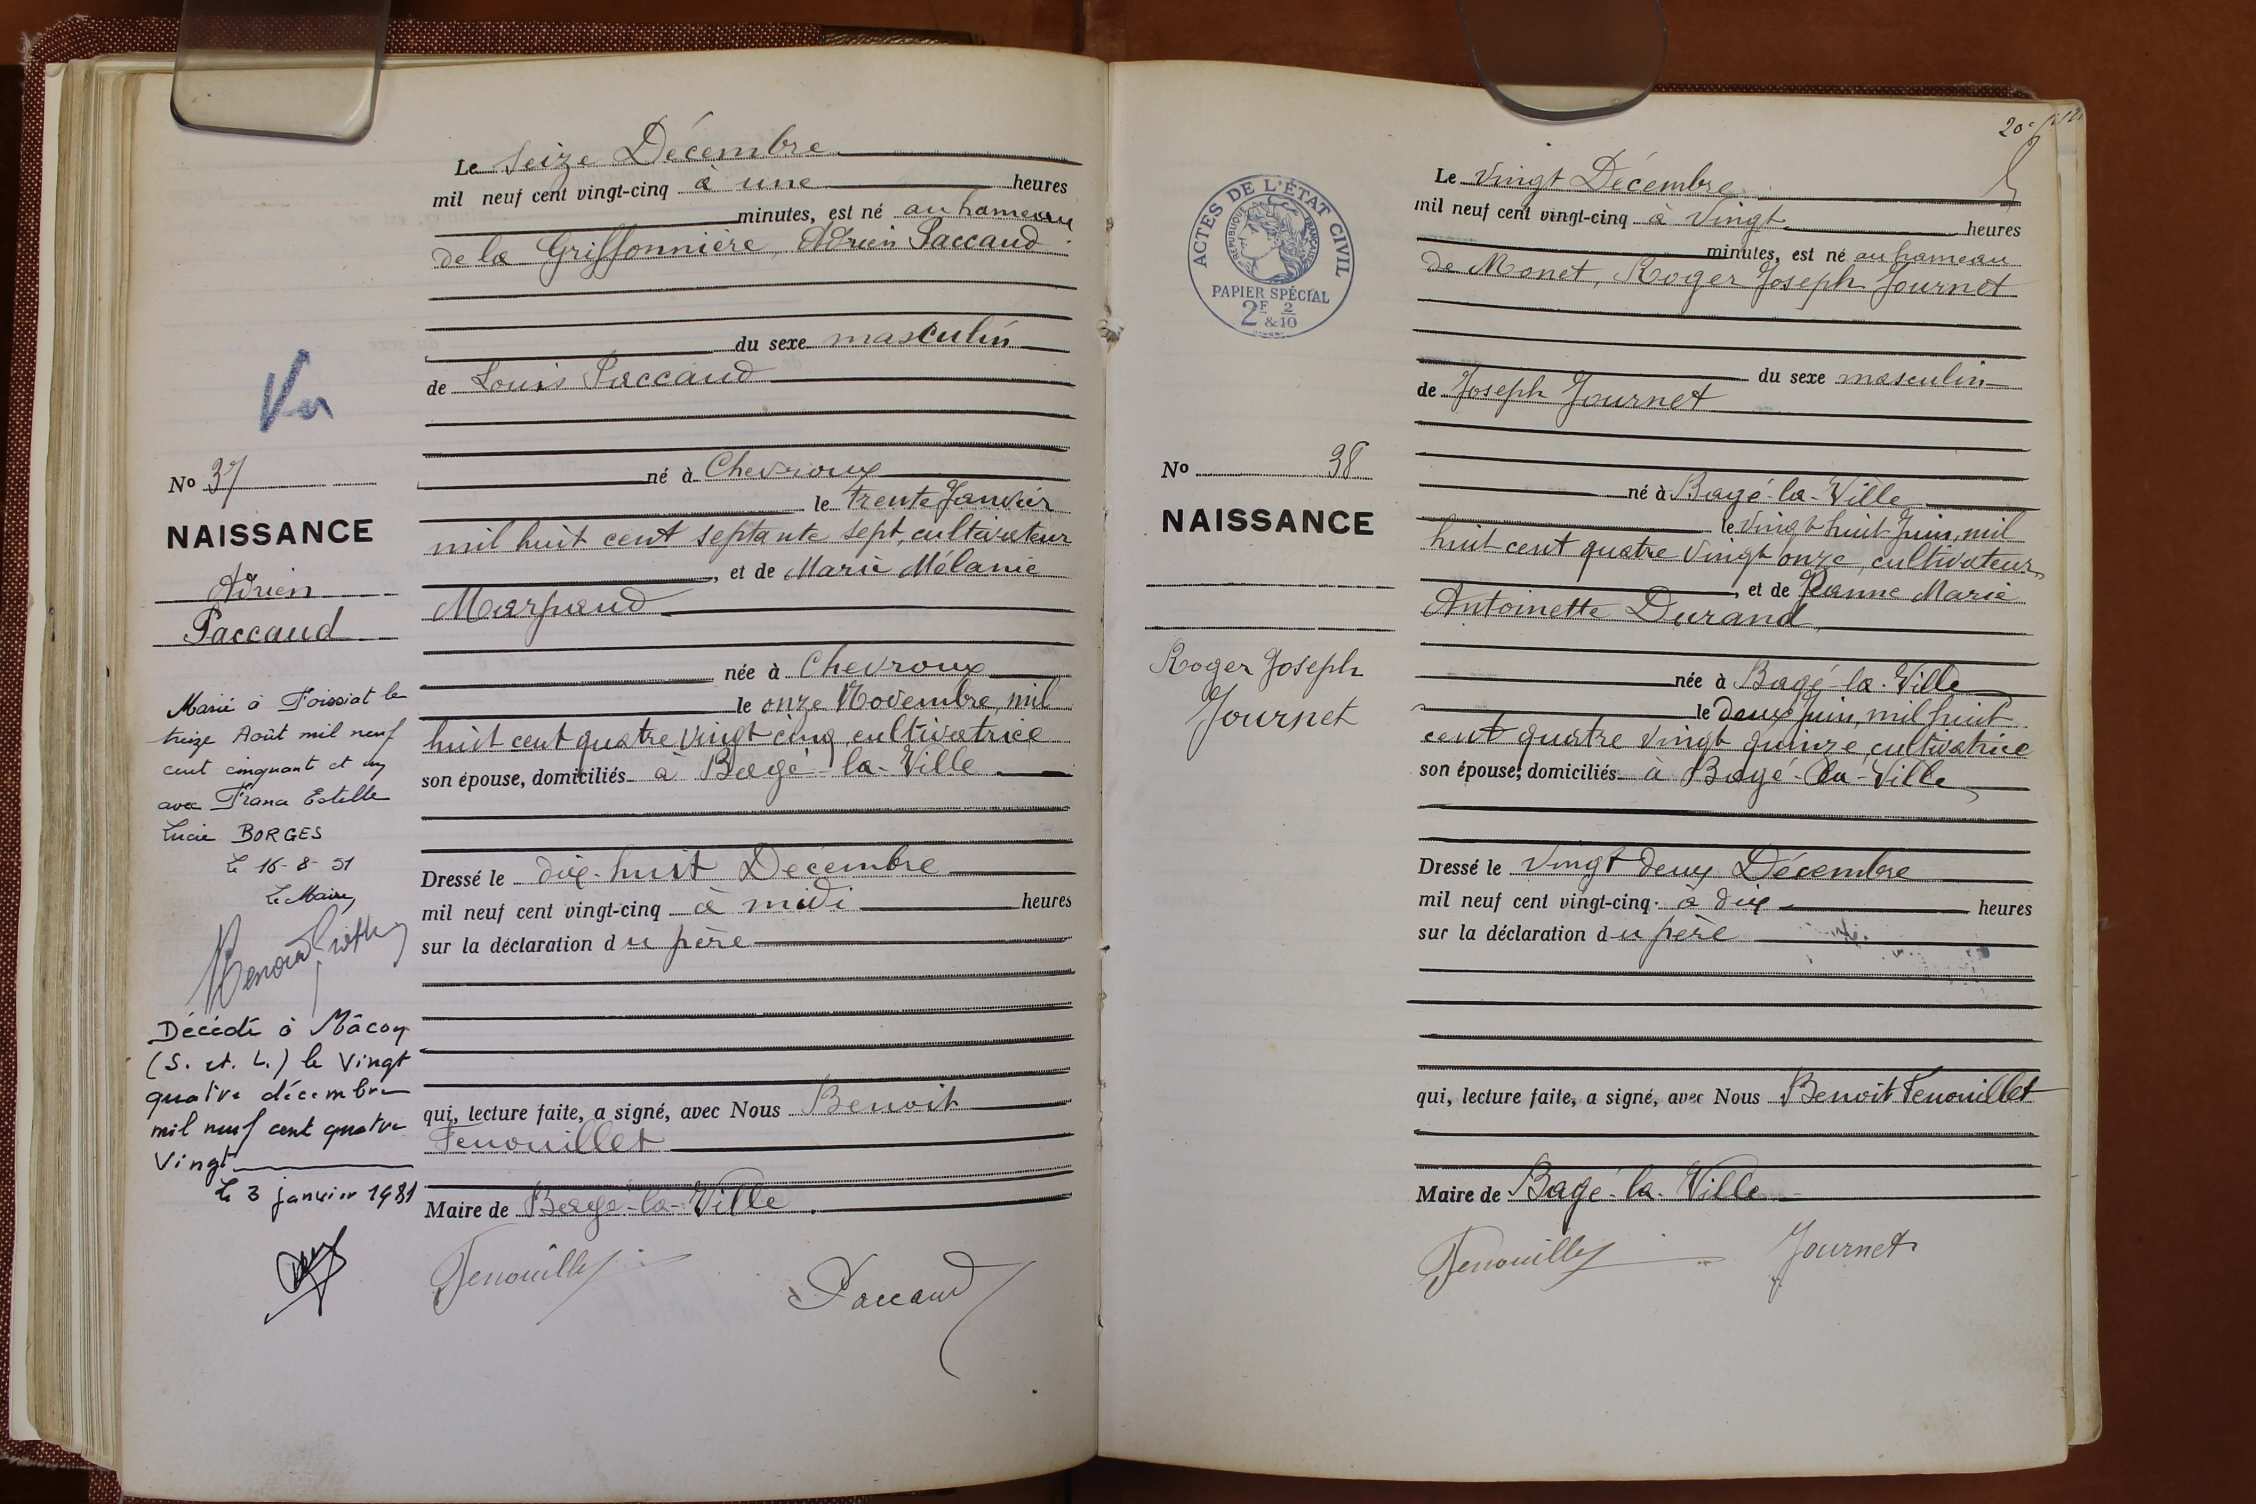 Le seize Décembre
mil neuf cent vingt-cinq à une heures
minutes, est né au hameau
de la Griffonnière, Adrien Paccaud
du sexe masculin
de Louis Paccaud
né à Chevroux
le trente Janvier
mil huit cent septante sept, cultivateur
, et de Marie Mélanie
Marpaud
née à Chevroux
le onze Novembre, mil
huit cent quatre vingt cinq, cultivatrice
son épouse, domiciliés à Bagé-la-Ville
Dressé le dix-huit Décembre
mil neuf cent vingt-cinq à midi heures
sur la déclaration du père
qui, lecture faite, a signé, avec Nous Benoit
Fenouillet
Maire de Bagé-la-Ville.
Fenouillet
Paccaud
Vu
No 37
NAISSANCE
Adrien
Paccaud
Marié à Foissiat le
treize Août mil neuf
cent cinquante et un
avec Frana Estelle
Lucie BORGES
Le 16-8-51
Le Maire,
Décédé à Mâcon
(S. et. L.) le Vingt
quatre décembre
mil neuf cent quatre
Vingt
le 3 janvier 1981
20e
ACTES DE L'ÉTAT CIVIL
RÉPUBLIQUE FRANÇAISE
PAPIER SPÉCIAL
2F & 2/10
No 38
NAISSANCE
Roger Joseph
Journet
Le vingt Décembre
mil neuf cent vingt-cinq à vingt heures
minutes, est né au hameau
de Monet, Roger Joseph Journet
du sexe masculin
de Joseph Journet
né à Bagé-la-Ville
le vingt huit Juin, mil
huit cent quatre vingt onze, cultivateur
, et de Jeanne Marie
Antoinette Durand
née à Bagé-la-Ville
le deux Juin, mil huit
cent quatre vingt quinze, cultivatrice
son épouse, domiciliés à Bagé-la-Ville
Dressé le vingt deux Décembre
mil neuf cent vingt-cinq à dix heures
sur la déclaration du père
qui, lecture faite, a signé, avec Nous Benoit Fenouillet
Maire de Bagé-la-Ville
Fenouillet
Journet